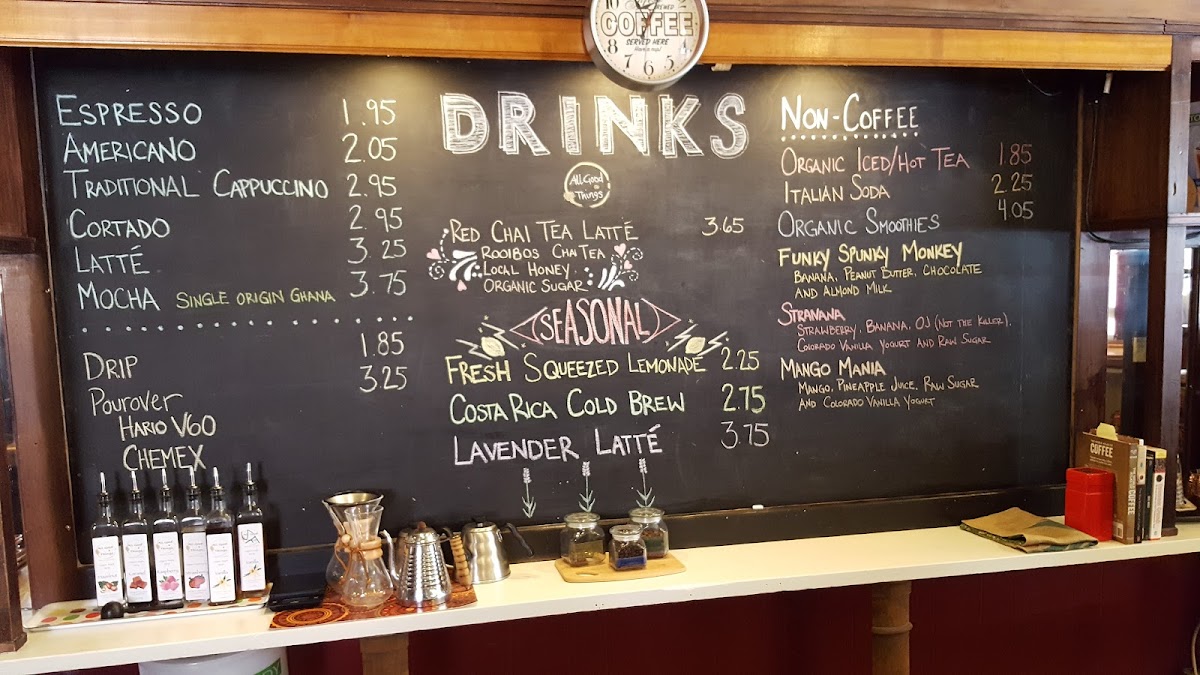 COFFEE
SERVED HERE
DRINKS
All Good Things
ESPRESSO 1.95
AMERICANO 2.05
TRADITIONAL CAPPUCCINO 2.95
CORTADO 2.95
LATTÉ 3.25
MOCHA SINGLE ORIGIN GHANA 3.75
DRIP 1.85
POUROVER 3.25
HARIO V60
CHEMEX
RED CHAI TEA LATTÉ 3.65
ROOIBOS CHAI TEA
LOCAL HONEY
ORGANIC SUGAR
SEASONAL
FRESH SQUEEZED LEMONADE 2.25
COSTA RICA COLD BREW 2.75
LAVENDER LATTÉ 3.75
NON-COFFEE
ORGANIC ICED/HOT TEA 1.85
ITALIAN SODA 2.25
ORGANIC SMOOTHIES 4.05
FUNKY SPUNKY MONKEY
BANANA, PEANUT BUTTER, CHOCOLATE
AND ALMOND MILK
STRANANA
STRAWBERRY, BANANA, OJ (NOT THE KILLER),
COLORADO VANILLA YOGURT AND RAW SUGAR
MANGO MANIA
MANGO, PINEAPPLE JUICE, RAW SUGAR
AND COLORADO VANILLA YOGURT
COFFEE